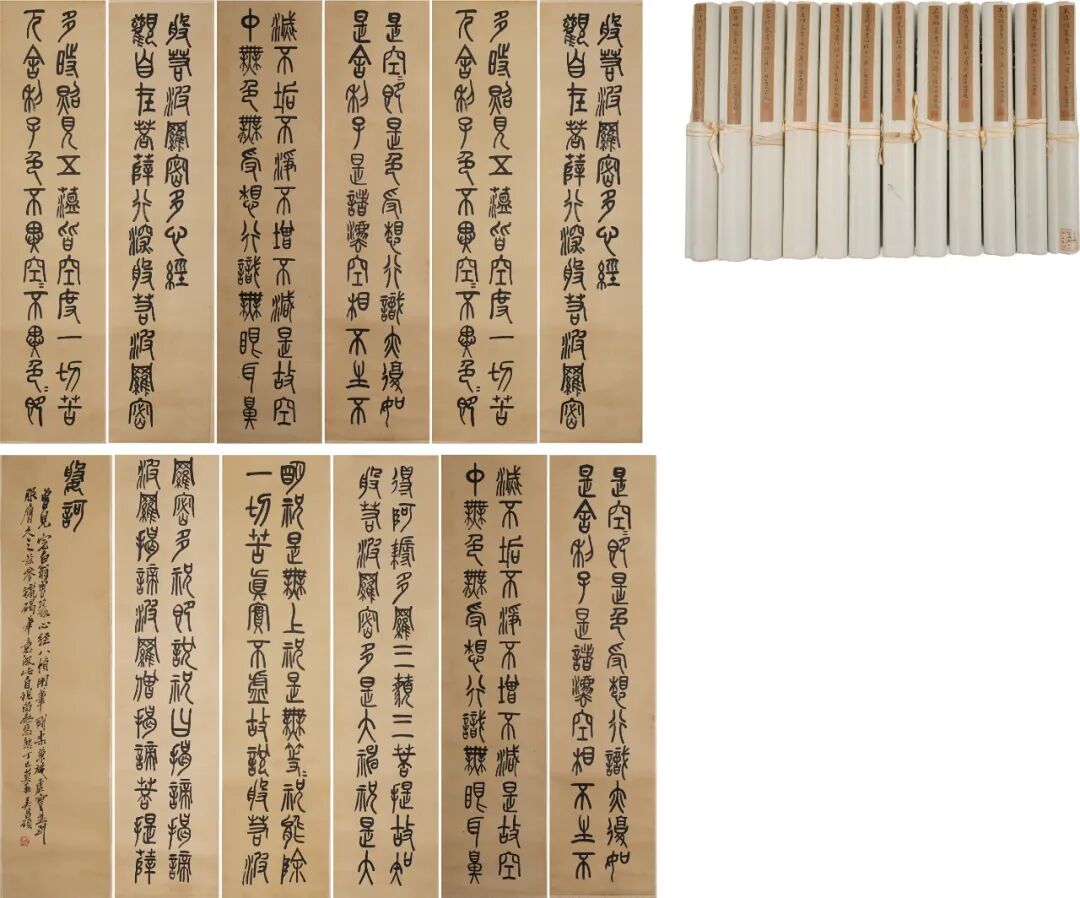 般若波羅密多心經
觀自在菩薩行深般若波羅密
多時照見五蘊皆空度一切苦
厄舍利子色不異空〻不異色〻即
是空〻即是色受想行識亦復如
是舍利子是諸灋空相不生不
滅不垢不淨不增不減是故空
中無色無受想行識無眼耳鼻
般若波羅密多心經
觀自在菩薩行深般若波羅密
多時照見五蘊皆空度一切苦
厄舍利子色不異空〻不異色〻即
是空〻即是色受想行識亦復如
是舍利子是諸灋空相不生不
滅不垢不淨不增不減是故空
中無色無受想行識無眼耳鼻
得阿耨多羅三藐三菩提故知
般若波羅密多是大神祝是大
明祝是無上祝是無等〻祝能除
一切苦真實不虛故說般若波
羅密多祝即說祝曰揭諦揭諦
波羅揭諦波羅僧揭諦菩提薩
婆訶
曾見完白翁書篆心經八幀用筆剛柔兼施虛實並到
服膺久之茲參獵碣筆意成此自視尚無惡態丁巳莫秋吳昌碩